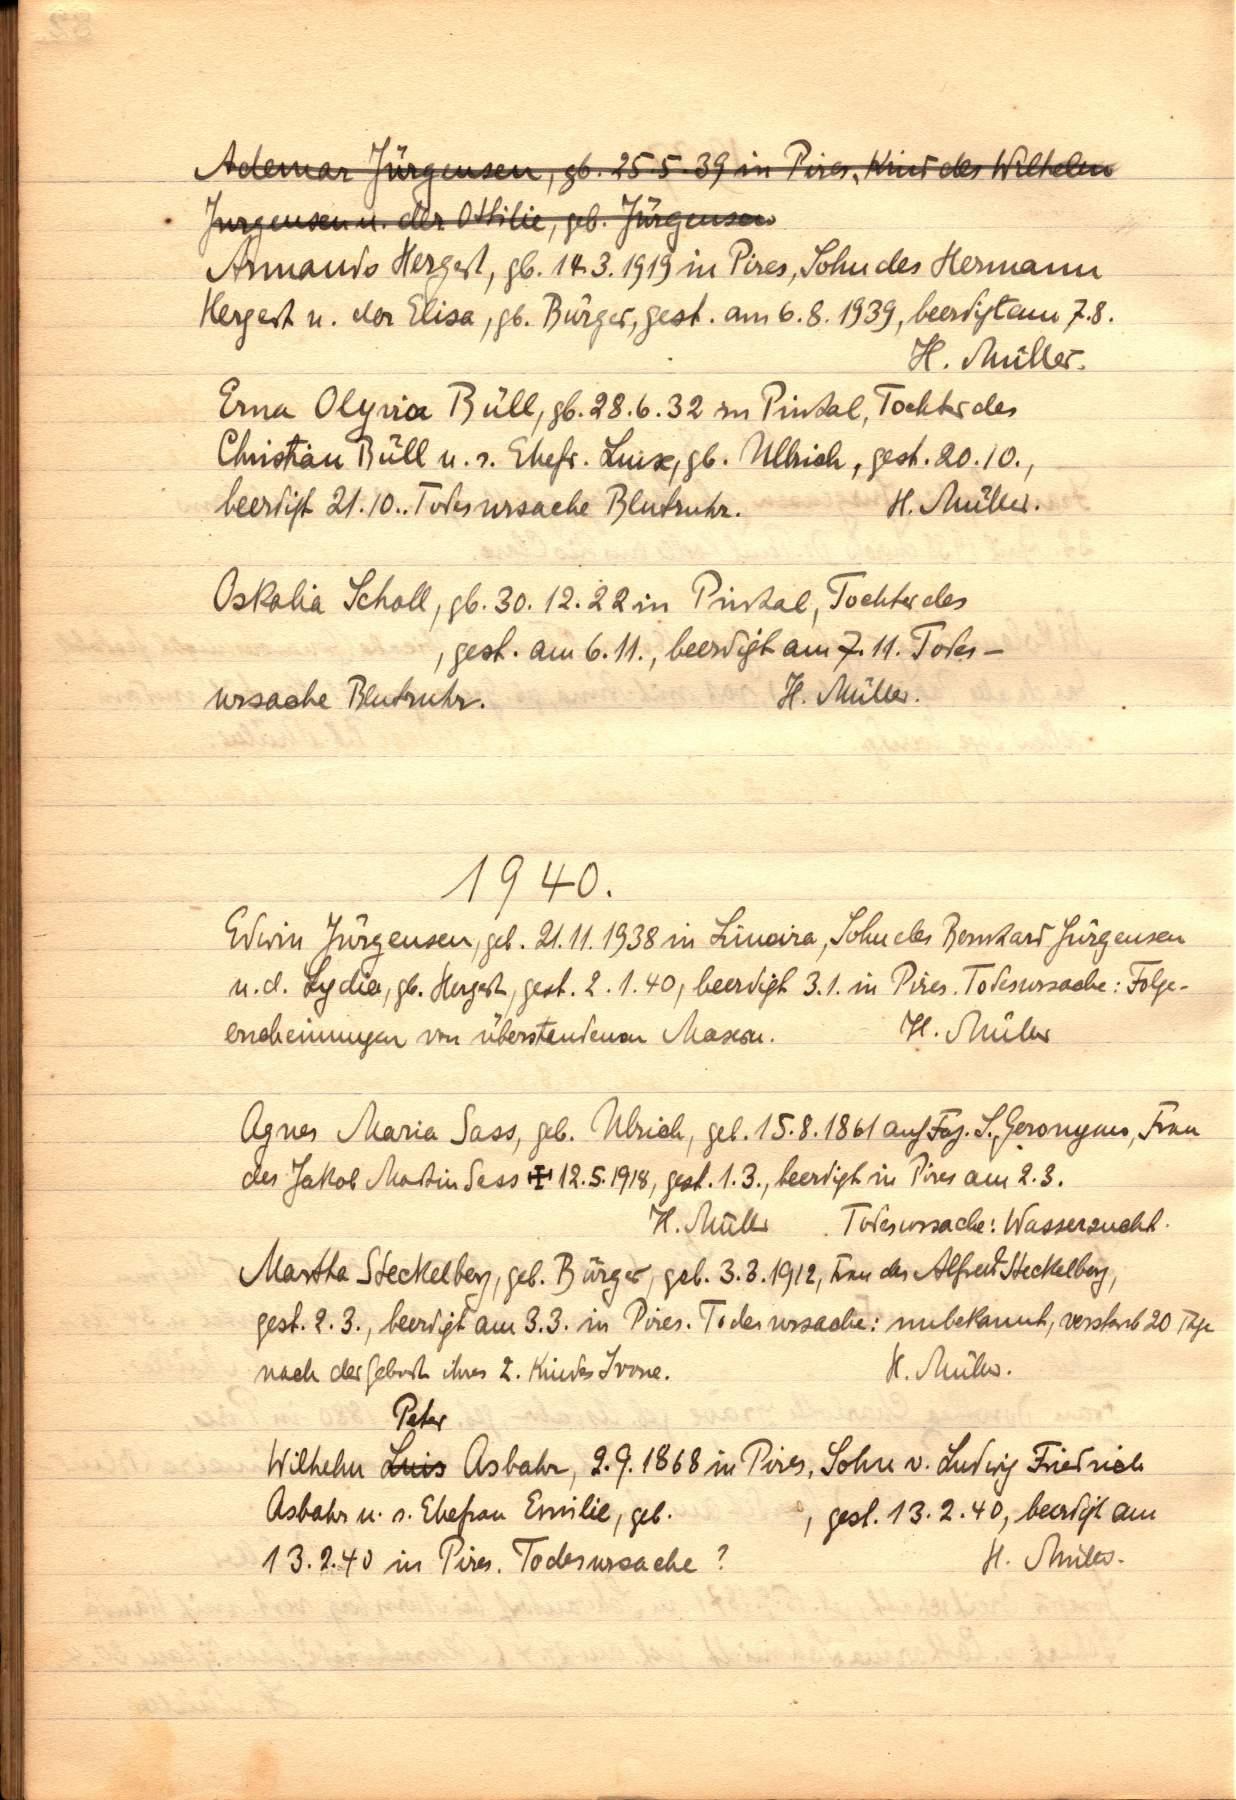 Ademar Jürgensen, gb. 25.5.39 in Pires, Kind des Wilhelm
Jürgensen u. der Ottilie, geb. Jürgensen
Armando Hergert, gb. 14.3.1919 in Pires, Sohn des Hermann
Hergert u. der Elisa, gb. Bürger, gest. am 6.8.1939, beerdigt am 7.8.
H. Müller.
Erna Olyvia Büll, gb. 28.6.32 in Pinhal, Tochter des
Christian Büll u. s. Ehefr. Luise, gb. Ullrich, gest. 20.10.,
beerdigt 21.10.. Todesursache Blutruhr. H. Müller.
Oskalia Scholl, gb. 30.12.22 in Pinhal, Tochter des
, gest. am 6.11., beerdigt am 7.11. Todes-
ursache Blutruhr. H. Müller.
1940.
Edwin Jürgensen, geb. 21.11.1938 in Limeira, Sohn des Bernhard Jürgensen
u. d. Lydia, gb. Hergert, gest. 2.1.40, beerdigt 3.1. in Pires. Todesursache: Folge-
erscheinungen von überstandenen Masern. H. Müller
Agnes Maria Sass, geb. Ulrich, geb. 15.8.1861 auf Faz. S. Geronymo, Frau
des Jakob Martin Sass ✠ 12.5.1918, gest. 1.3., beerdigt in Pires am 2.3.
H. Müller Todesursache: Wassersucht.
Martha Steckelberg, geb. Bürger, geb. 3.3.1912, Frau des Alfred Steckelberg,
gest. 2.3., beerdigt am 3.3. in Pires. Todesursache: unbekannt, verstarb 20 Tage
nach der Geburt ihres 2. Kindes Ivone. H. Müller.
Peter
Wilhelm Luis Asbahr, 2.9.1868 in Pires, Sohn v. Ludwig Friedrich
Asbahr u. s. Ehefrau Emilie, geb. , gest. 13.2.40, beerdigt am
13.2.40 in Pires. Todesursache ? H. Müller.